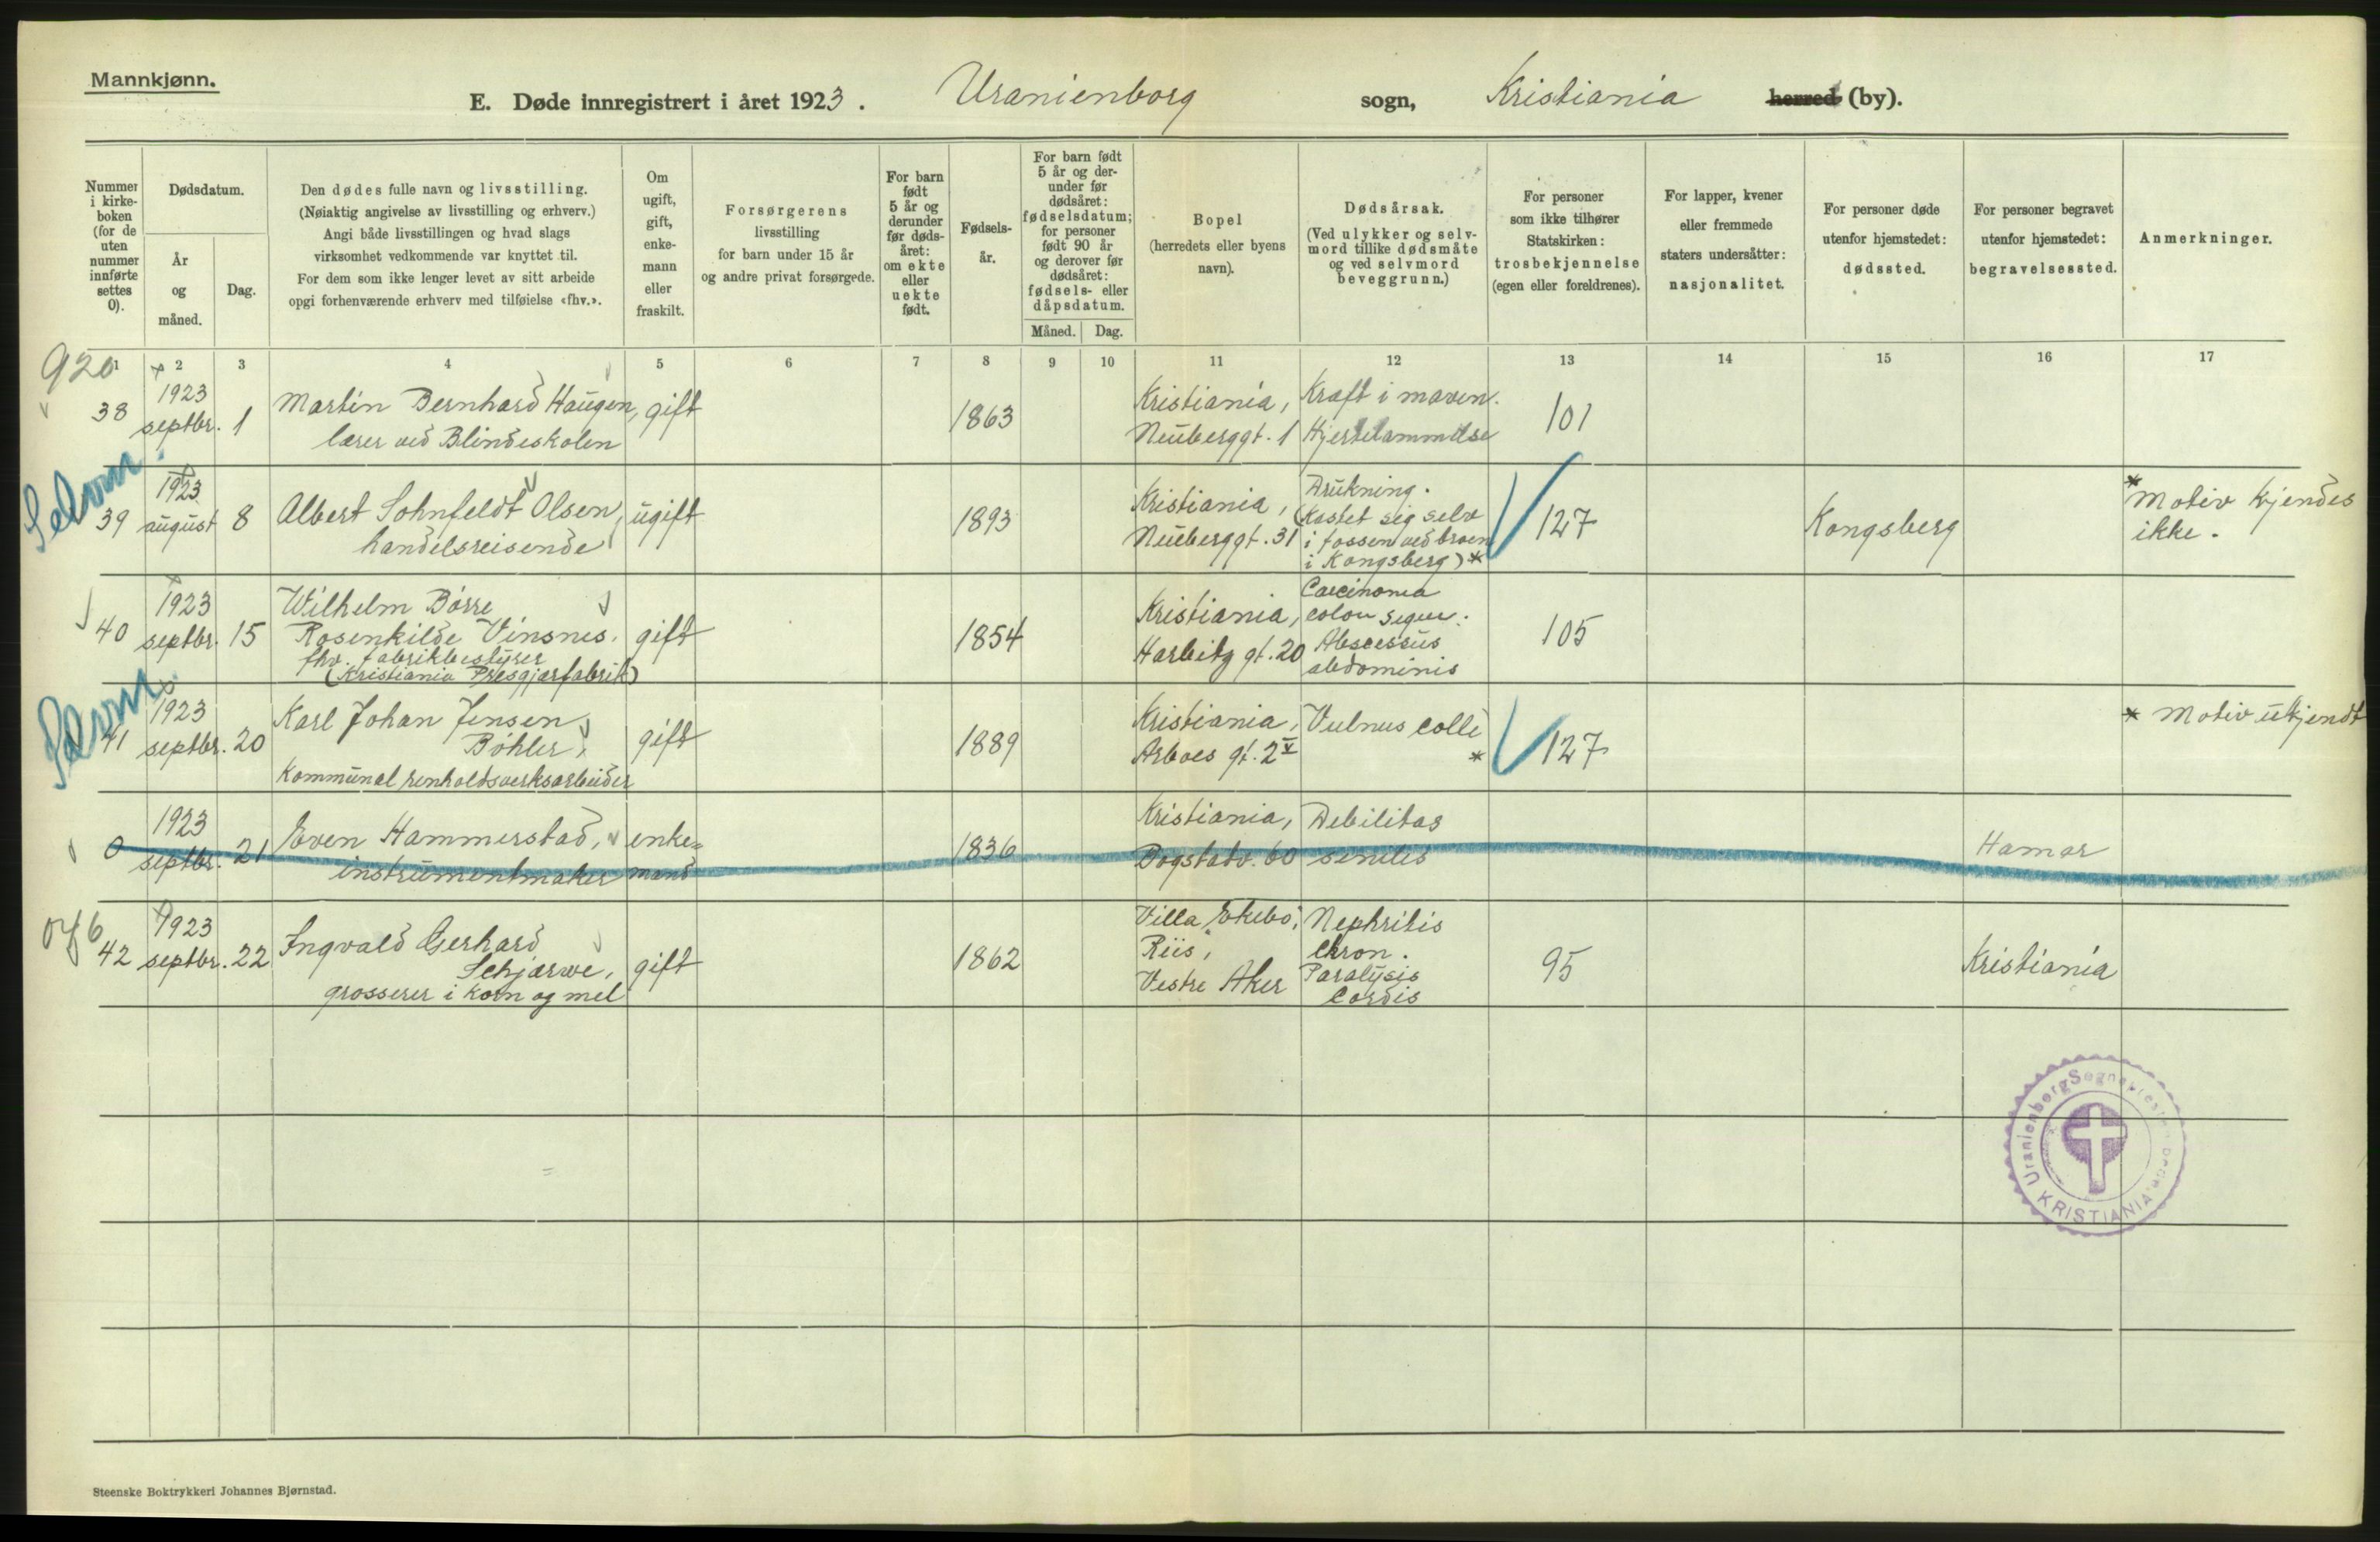 Mannkjønn.
E. Døde innregistrert i året 1923. Uranienborg sogn, Kristiania herred (by).
Nummer i kirke-boken (for de uten nummer innførte settes 0).
Dødsdatum.
År og måned.
Dag.
Den dødes fulle navn og livsstilling.
(Nøiaktig angivelse av livsstilling og erhverv.)
Angi både livsstillingen og hvad slags
virksomhet vedkommende var knyttet til.
For dem som ikke lenger levet av sitt arbeide
opgi forhenværende erhverv med tilføielse «fhv.».
Om ugift, gift, enke-mann eller fraskilt.
Forsørgerens
livsstilling
for barn under 15 år
og andre privat forsørgede.
For barn født 5 år og derunder før døds-året: om ekte eller uekte født.
Fødsels-år.
For barn født 5 år og der-under før dødsåret: fødselsdatum; for personer født 90 år og derover før dødsåret: fødsels- eller dåpsdatum.
Måned. Dag.
Bopel
(herredets eller byens
navn).
Dødsårsak.
(Ved ulykker og selv-
mord tillike dødsmåte
og ved selvmord
beveggrunn.)
For personer
som ikke tilhører
Statskirken:
trosbekjennelse
(egen eller foreldrenes).
For lapper, kvener
eller fremmede
staters undersåtter:
nasjonalitet.
For personer døde
utenfor hjemstedet:
dødssted.
For personer begravet
utenfor hjemstedet:
begravelsessted.
Anmerkninger.
1 2 3 4 5 6 7 8 9 10 11 12 13 14 15 16 17
920
38 1923 septbr. 1 Martin Bernhard Haugen, gift 1863 Kristiania, Kræft i maven. 101
lærer ved Blindeskolen Neuberggt. 1 Hjertelammelse
Selvm.
39 1923 august 8 Albert Sohnfeldt Olsen, ugift 1893 Kristiania, Drukning. 127 Kongsberg * Motiv kjendes
handelsreisende Neuberggt. 31 (Kastet sig selv ikke.
i fossen ved broen
i Kongsberg) *
40 1923 septbr. 15 Wilhelm Børre gift 1854 Kristiania, Carcinoma 105
Rosenkilde Vinsnes. Harbitz gt. 20 colon
fhv. fabrikbestyrer Abscessus
(Kristiania Presgjærfabrik) abdominis
Selvm.
41 1923 septbr. 20 Karl Johan Jensen gift 1889 Kristiania, Vulnus colli 127 * Motiv ukjendt
Böhler, Arboes gt. 2 V *
kommunal renholdsverksarbeider
0 1923 septbr. 21 Even Hammerstad, enke= 1836 Kristiania, Debilitas Hamar
instrumentmaker mand Bogstadv. 60 senilis
42 1923 septbr. 22 Ingvald Gerhard gift 1862 Villa Ekebo, Nephritis 95 Kristiania
Schjærwe, Riis, chron.
grosserer i korn og mel Vestre Aker Paralysis
Cordis
Uranienborg
KRISTIANIA
Steenske Boktrykkeri Johannes Bjørnstad.